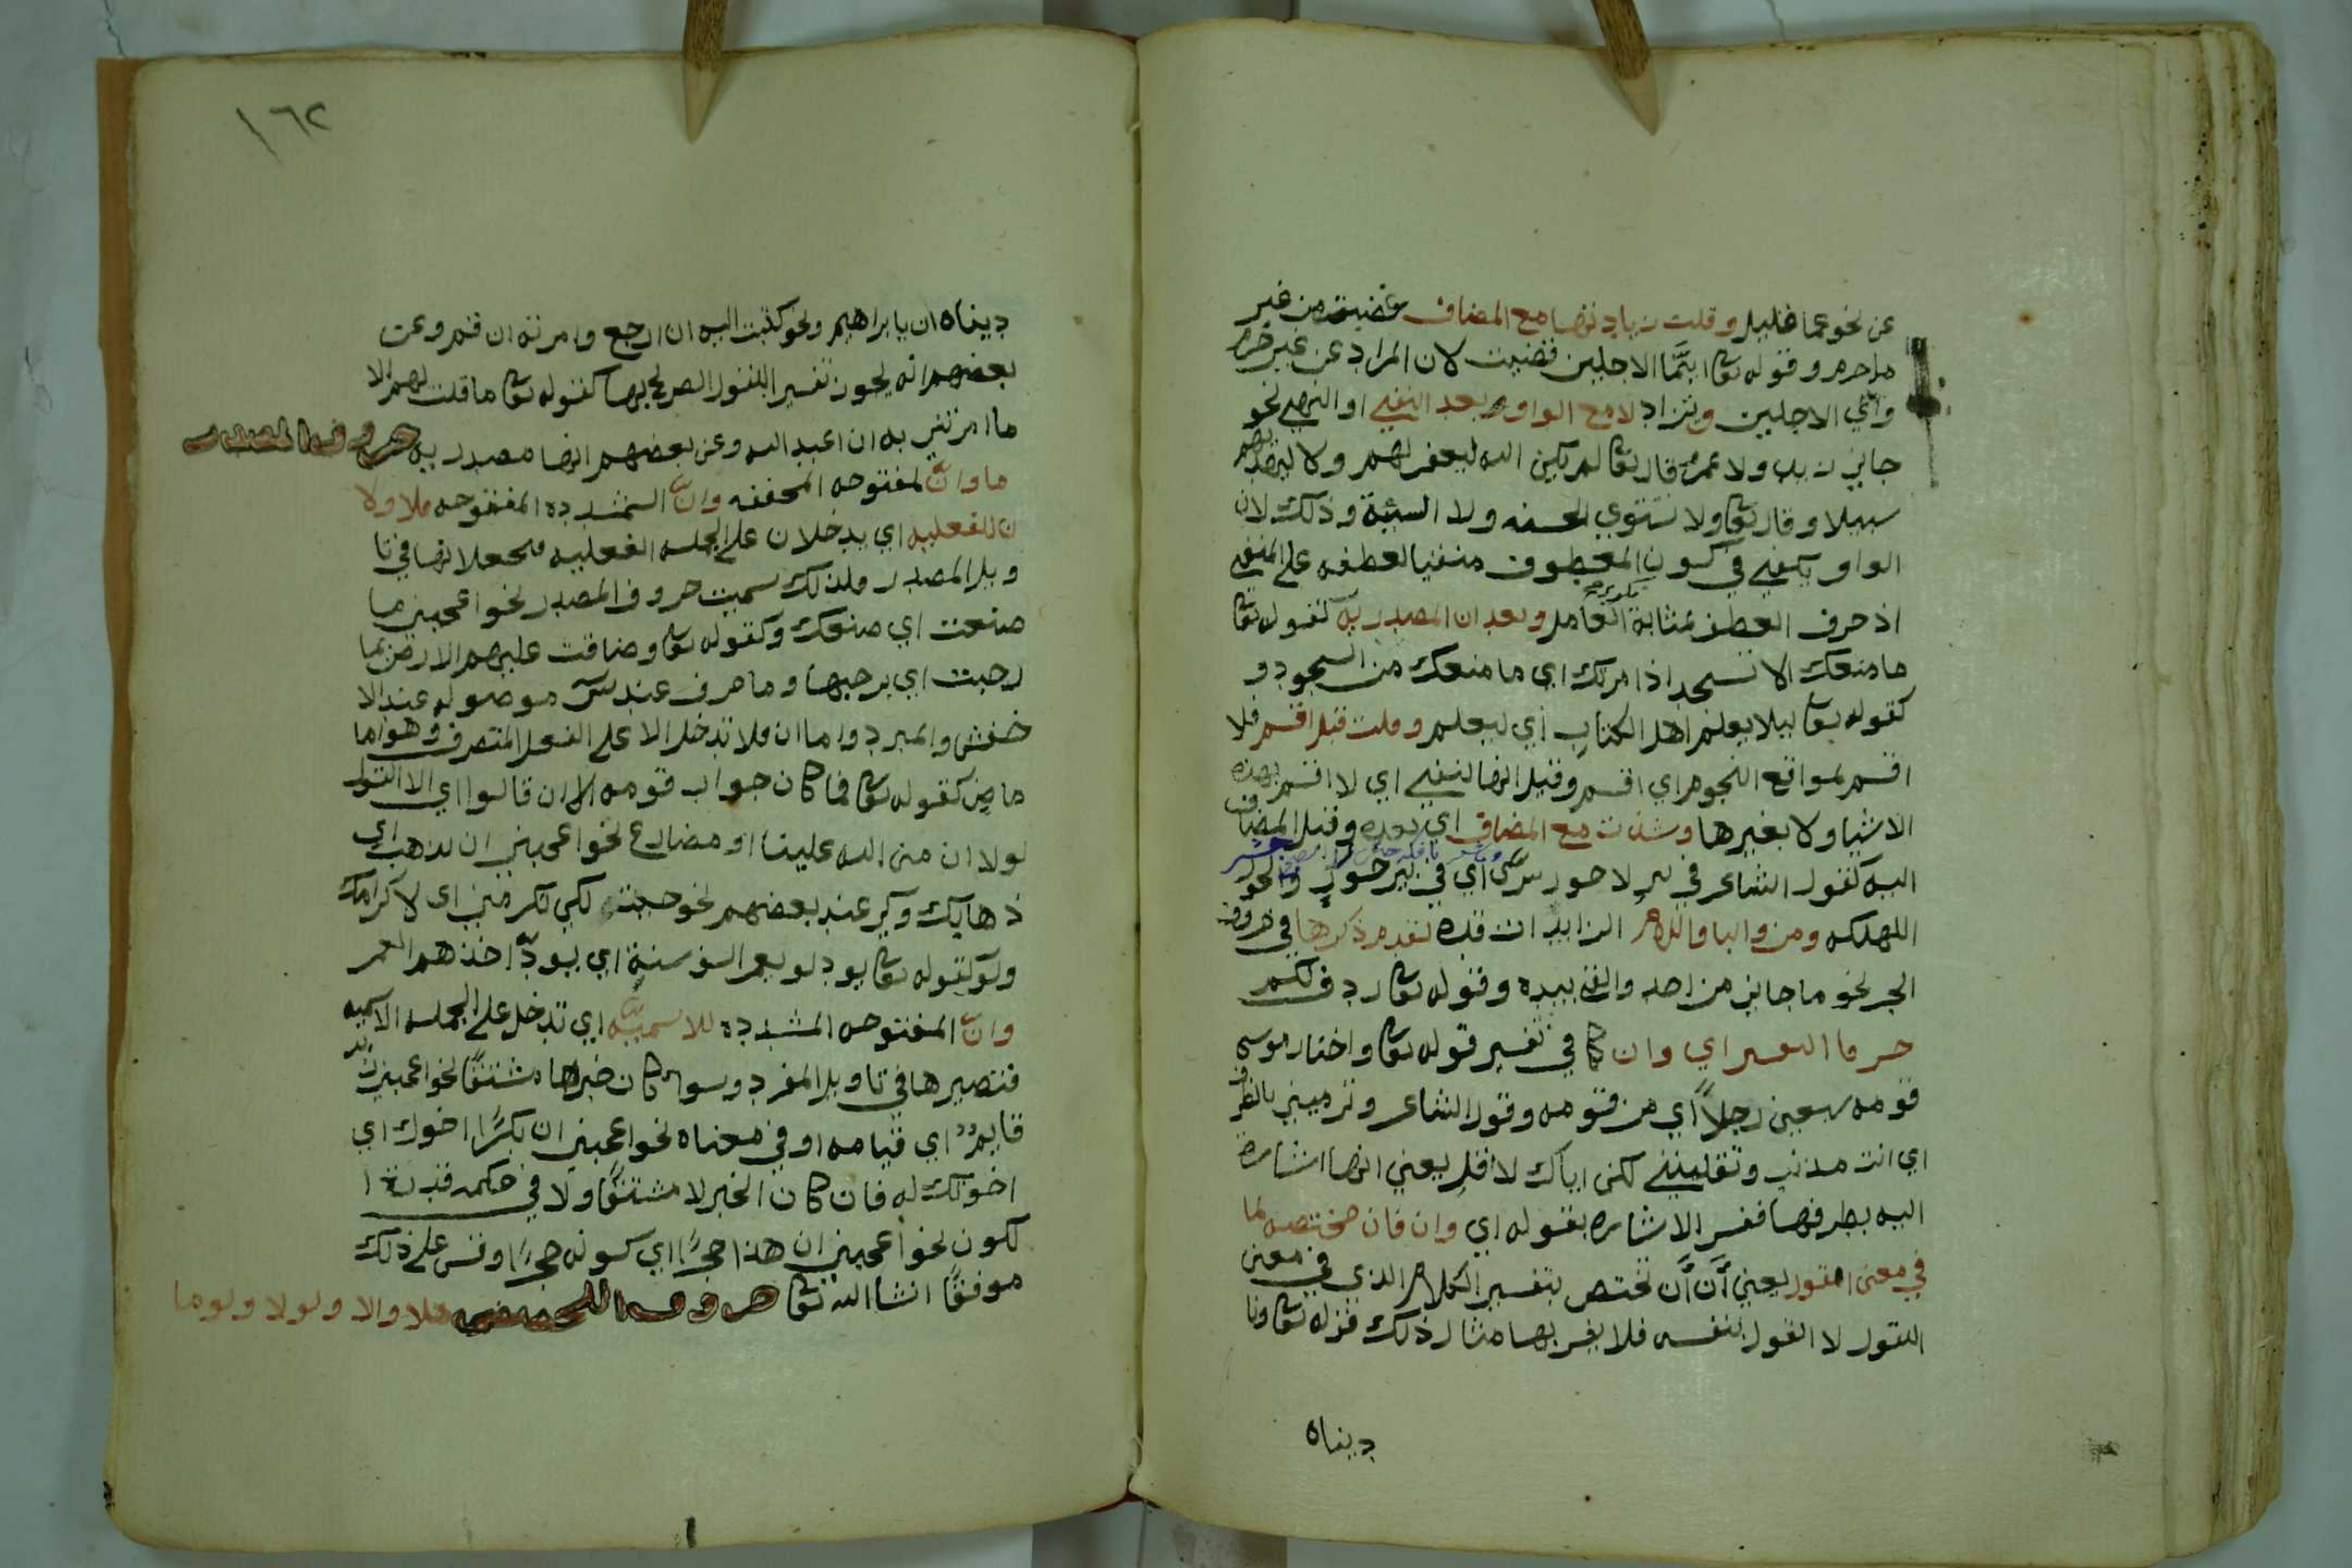 عن نحو عما قليل وقلت زيادتها مع المضاف غضبت من غير
ما جرم وقوله تعا ايّما الاجلين قضيت لان المراد عن غير جرم
واي الاجلين وتزاد لا مع الواو بعد النفي او النهي نحو
جاني زيد ولا عمرو قال تعا لم يكن الله ليغفر لهم ولا ليهديهم
سبيلا وقال تعا ولا تستوي الحسنه ولا السيئة وذلك لان
الواو يكفي في كون المعطوف منفيا لعطفه على المنفي
اذ حرف العطف بمثابة العامل وبعد ان المصدريه كقوله تعا
ما منعك الا تسجد اذ امرتك اي ما منعك من السجود و
كقوله تعا ليلا يعلم اهل الكتاب اي ليعلم وقلت قبل اقسم فلا
اقسم بمواقع النجوم اي اقسم وقيل انها لنفي اي لا اقسم بهذه
الاشيا ولا بغيرها وشذت مع المضاف اي بعده وقبل المضاف
اليه كقول الشاعر في بير لا حور سرى اي في بير حور والحور
الهلكه ومن والبا واللام الزايدات قد تقدم ذكرها في حروف
الجر نحو ما جاني من احد والقى بيده وقوله تعا ردف لكم
حرفا التفسير اي وان كما في تفسير قوله تعا واختار موسى
قومه سبعين رجلاً اي من قومه وقول الشاعر وترمينني بالطرف
اي انت مذنب وتقلينني لكن اياك لا اقلي يعني انها اشارة
اليه بطرفها ففسر الاشاره بقوله اي وان فان مختصه بما
في معنى القول يعني اَنَّ اَن تختص بتفسير الكلام الذي في معنى
القول لا القول بنفسه فلا يفسر بها مثال ذلك قوله تعا ونا
ديناه
١٦٢
ديناه ان يا ابراهيم ونحو كتبت اليه ان ارجع وامرته ان قم وعن
بعضهم انه يجوز تفسير القول الصريح بها كقوله تعا ما قلت لهم الا
ما امرتني به ان اعبد الله وعن بعضهم انها مصدريه حروف المصدر
ما وانْ المفتوحه المخففه وانّ المشدده المفتوحه فلا ولا
ن للفعليه اي يدخلان على الجمله الفعليه فيجعلانها في تا
ويل المصدر فلذلك سميت حروف المصدر نحو اعجبني ما
صنعت اي صنعك وكقوله تعا وضاقت عليهم الارض بما
رحبت اي برحبها وما حرف عند س موصوله عند الا
خفش والمبرد واما ان فلا تدخل الا على الفعل المتصرف وهو اما
ماض كقوله تعا فما كان جواب قومه الا ان قالوا اي الا القول
لولا ان من الله علينا او مضارع نحو اعجبني ان تذهب اي
ذهابك وكي عند بعضهم نحو جيتك لكي تكرمني اي لاكرامك
ولو كقوله تعا يود لو يعمر الف سنة اي يودّ احدهم العمر
وانّ المفتوحه المشدده للاسميّه اي تدخل على الجمله الاسميه
فتصيرها في تاويل المفرد وسوا كان خبرها مشتقًا نحو اعجبني ان زيد
قايم اي قيامه او في معناه نحو اعجبني ان بكرًا اخوك اي
اخوتك له فان كان الخبر لا مشتقًا ولا في حكمه قدرت ا
لكون نحو اعجبني ان هذا حجرًا اي كونه حجرًا وقس على ذلك
موفقًا انشا الله تعا حروف التحضيض هلا والا ولولا ولوما